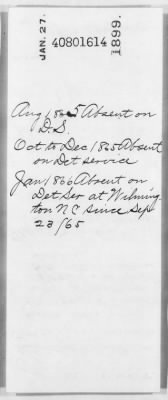 JAN. 27. 40801614 1899.
Aug 1865 Absent on
D.S.
Oct to Dec 1865 Absent
on Det service
Jan 1866 Absent on
Det Ser at Wilming
ton NC since Sep
23/65